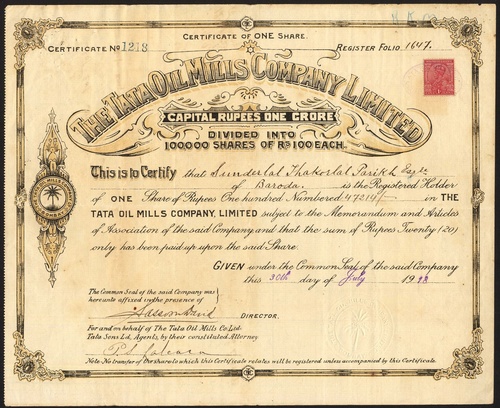 CERTIFICATE OF ONE SHARE.
CERTIFICATE No 1218
REGISTER FOLIO 1647.
THE TATA OIL MILLS COMPANY LIMITED
CAPITAL RUPEES ONE CRORE
DIVIDED INTO
100,000 SHARES OF RS 100 EACH.
This is to Certify that Sunderlal Thakorlal Parikh Esqre
of Baroda. is the Registered Holder
of ONE Share of Rupees One hundred Numbered 47214 in THE
TATA OIL MILLS COMPANY, LIMITED subject to the Memorandum and Articles
of Association of the said Company and that the sum of Rupees Twenty (20)
only has been paid up upon the said Share.
GIVEN under the Common Seal of the said Company
this 30th day of July 19
The Common Seal of the said Company was
hereunto affixed in the presence of
DIRECTOR.
For and on behalf of The Tata Oil Mills Co Ltd.
Tata Sons Ld, Agents, by their constituted Attorney
Note. No transfer of the share to which this Certificate relates will be registered unless accompanied by this Certificate.